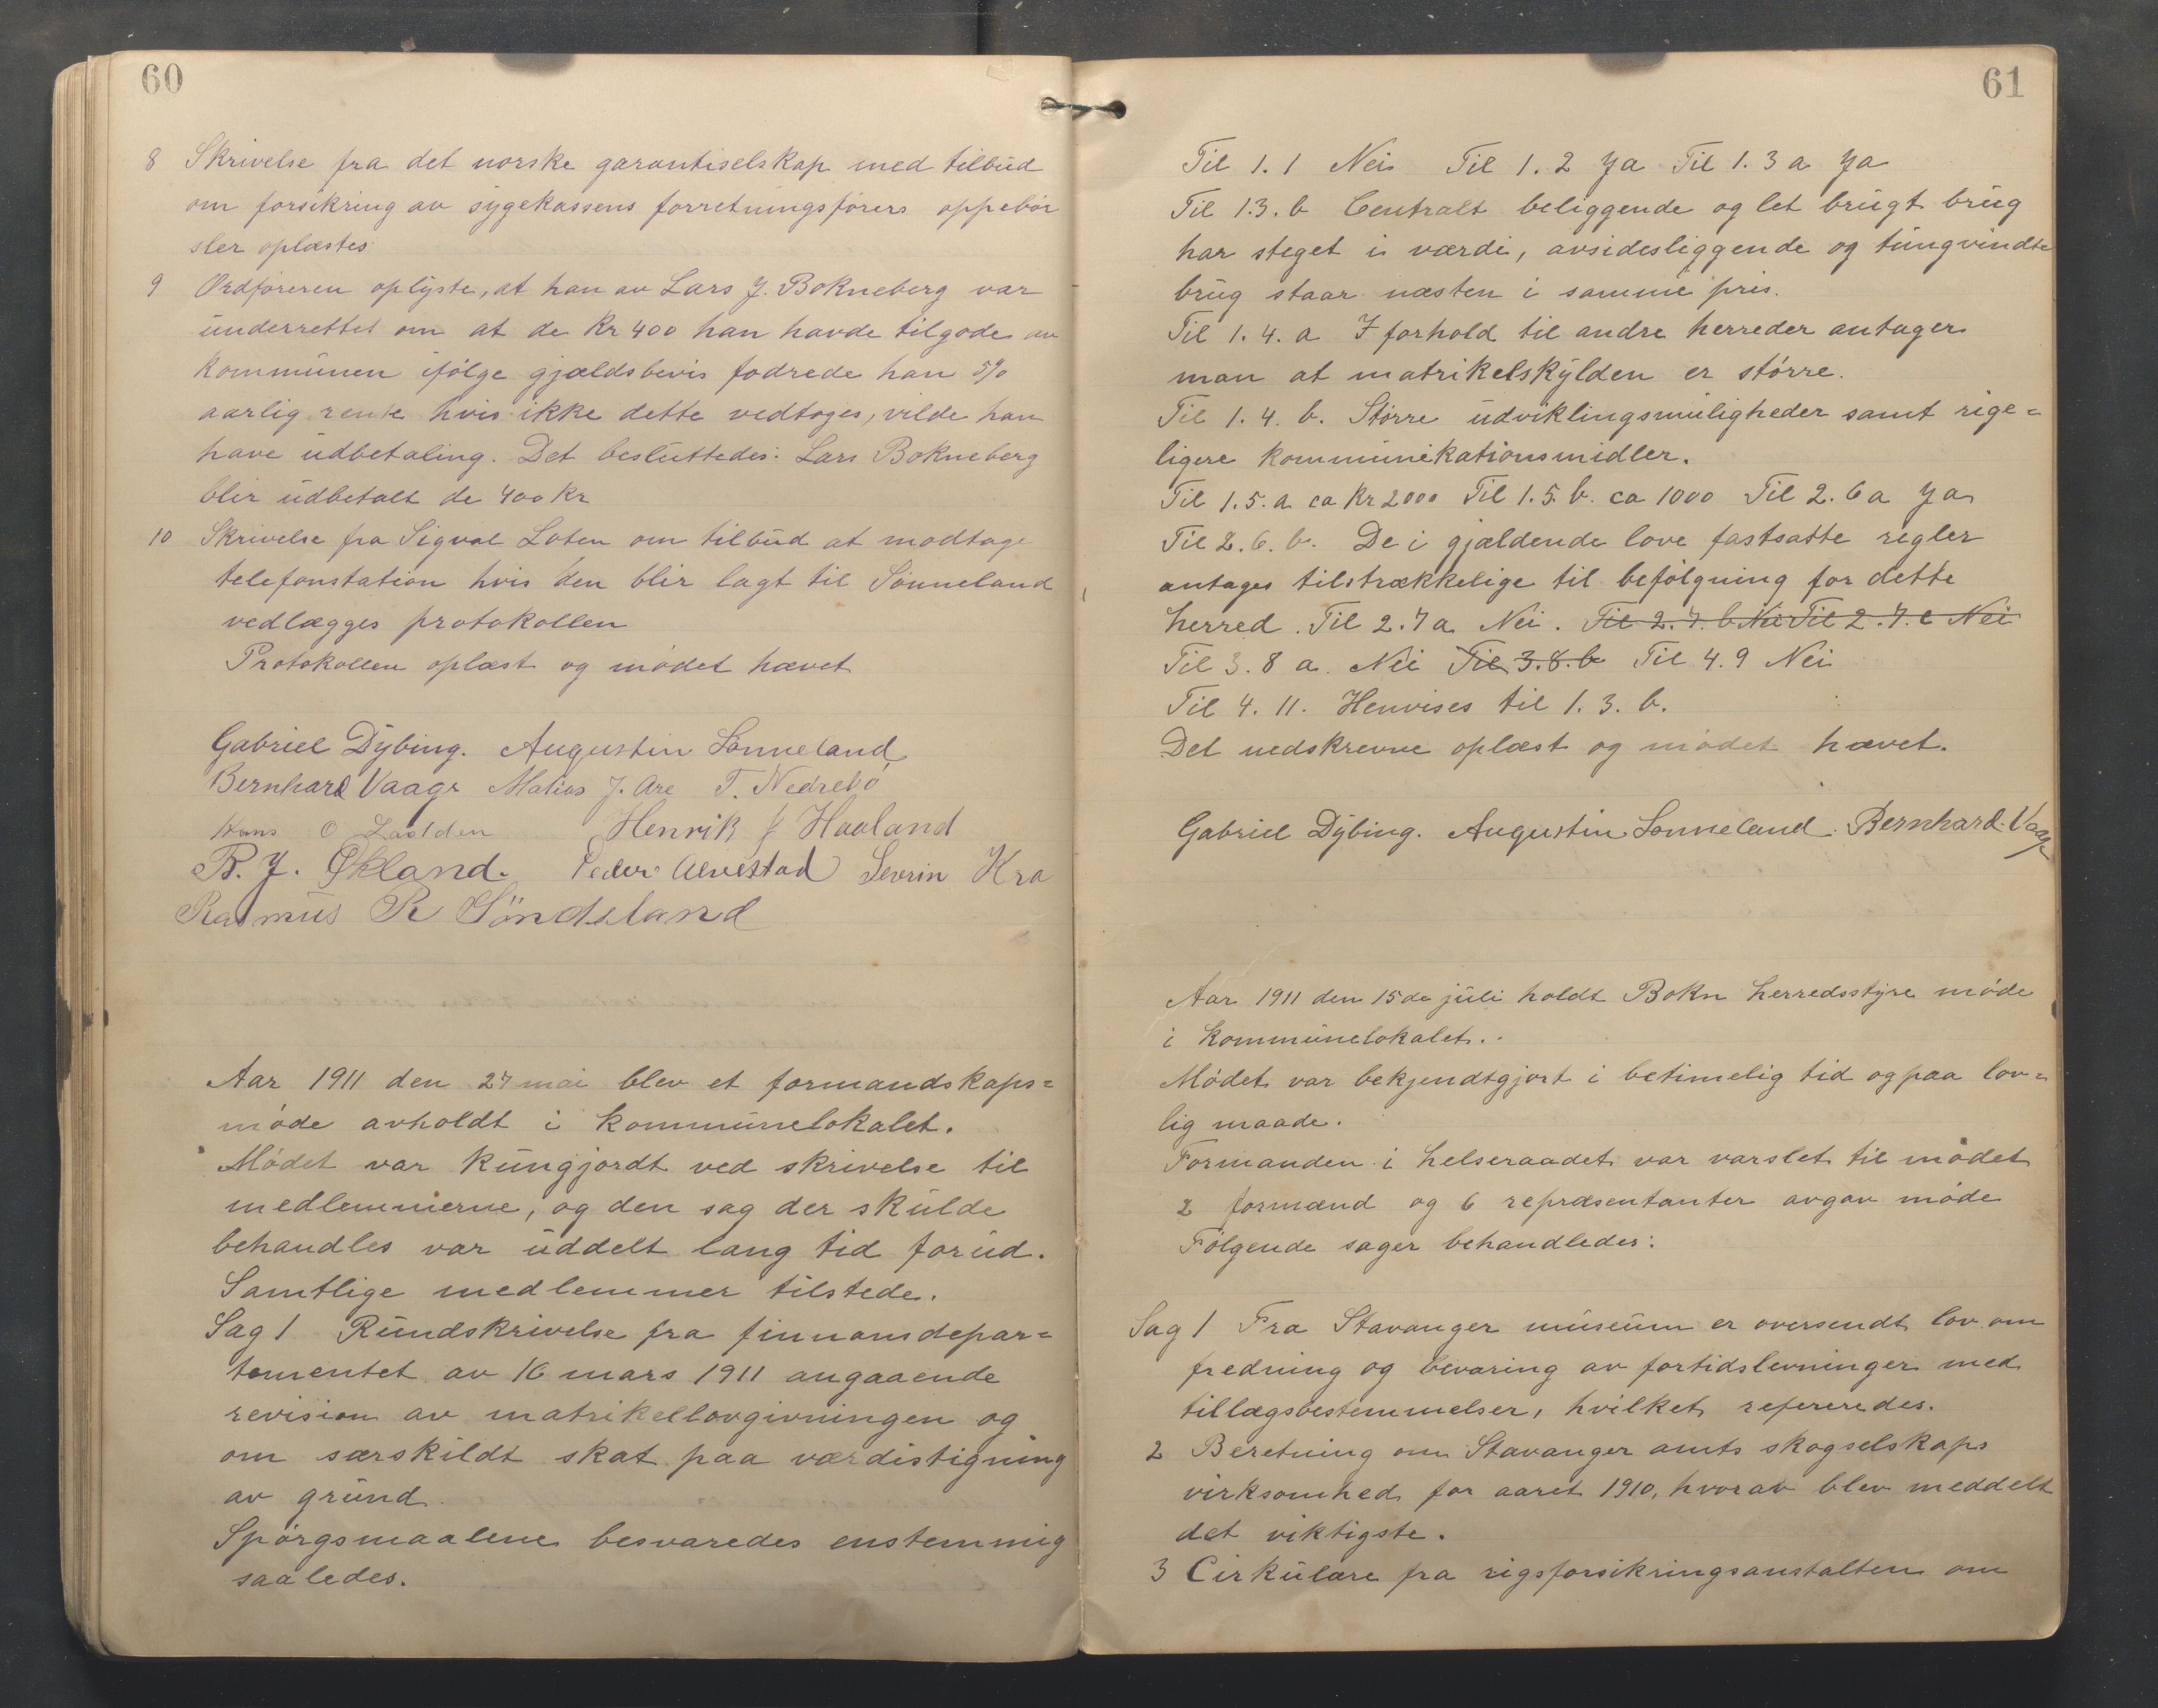 60
8 Skrivelse fra det norske garantiselskap med tilbud
om forsikring av sygekassens forretningsförers oppebör
sler oplæstes
9 Ordföreren oplyste, at han av Lars J. Bokneberg var
underrettet om at de Kr 400 han havde tilgode av
Kommunen ifölge gjældsbevis fodrede han 5%
aarlig rente hvis ikke dette vedtoges, vilde han
have udbetaling. Det besluttedes: Lars Bokneberg
blir udbetalt de 400 Kr
10 Skrivelse fra Sigval Loten om tilbud at modtage
telefonstation hvis den blir lagt til Sönneland
vedlægges protokollen
Protokollen oplæst og mödet hævet
Gabriel Dybing. Augustin Sonneland
Bernhard Vaage Matias J. Are T. Nedrebö
Hans O Henrik J Haaland
B. J. Økland. Peder Alvestad Sevrin Kra
Rasmus R Söndeland
Aar 1911 den 27 mai blev et formandskaps=
möde avholdt i kommunelokalet.
Mödet var kungjordt ved skrivelse til
medlemmerne, og den sag der skulde
behandles var uddelt lang tid forud.
Samtlige medlemmer tilstede.
Sag 1 Rundskrivelse fra finnansdepar=
tementet av 16 mars 1911 angaaende
revision av matrikellovgivningen og
om særskildt skat paa værdistigning
av grund.
Spörgsmaalene besvaredes enstemmig
saaledes.
61
Til 1.1 Nei Til 1.2 Ja Til 1.3 a Ja
Til 1.3.b Centralt beliggende og let brugt brug
har steget i værdi, avsidesliggende og tungvindte
brug staar næsten i samme pris.
Til 1.4.a I forhold til andre herreder antager
man at matrikelskylden er större.
Til 1.4.b. Större udviklingsmuligheder samt rige=
ligere kommunikationsmidler.
Til 1.5.a ca Kr 2000 Til 1.5.b. ca 1000 Til 2.6a Ja
Til 2.6.b. De i gjældende love fastsatte regler
antages tilstrækkelige til befölgning for dette
herred. Til 2.7a Nei. Til 2.7.b Nei Til 2.7.c Nei
Til 3.8 a. Nei Til 3.8.b Til 4.9 Nei
Til 4.11. Henvises til 1.3.b.
Det nedskrevne oplæst og mödet hævet.
Gabriel Dybing. Augustin Sonneland. Bernhard Vaage
Aar 1911 den 15de juli holdt Bokn herredsstyre möde
i kommunelokalet.
Mödet var bekjendtgjort i betimelig tid og paa lov=
lig maade.
Formanden i helseraadet var varslet til mödet
2 formænd og 6 repræsentanter avgav möde
Fölgende sager behandledes:
Sag 1 Fra Stavanger museum er oversendt lov om
fredning og bevaring av fortidslevninger med
tillægsbestemmelser, hvilket refereredes.
2 Beretning om Stavanger amts skogselskaps
virksomhed for aaret 1910, hvorav blev meddelt
det viktigste.
3 Cirkulære fra rigsforsikringsanstalten om